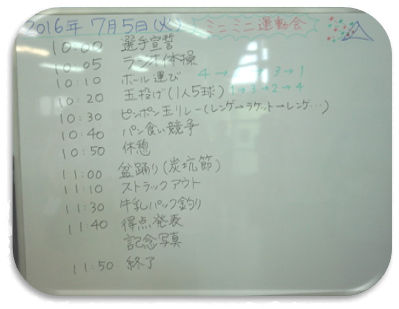 2016年 7月5日(火) ミニミニ運動会
10:00 選手宣誓
10:05 ラジオ体操
10:10 ボール運び 4→ 3→1
10:20 玉投げ(1人5球) 1→3→2→4
10:30 ピンポン玉リレー(レンゲ→ラケット→レンゲ…)
10:40 パン食い競争
10:50 休憩
11:00 盆踊り(炭坑節)
11:10 ストラックアウト
11:30 牛乳パック釣り
11:40 得点発表
記念写真
11:50 終了